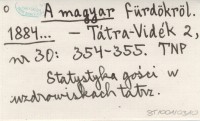 A magyar fürdőkről.
1884.... - Tátra-Vidék 2,
nr 30: 354-355. TNP
Statystyka gości w
uzdrowiskach tatrz.